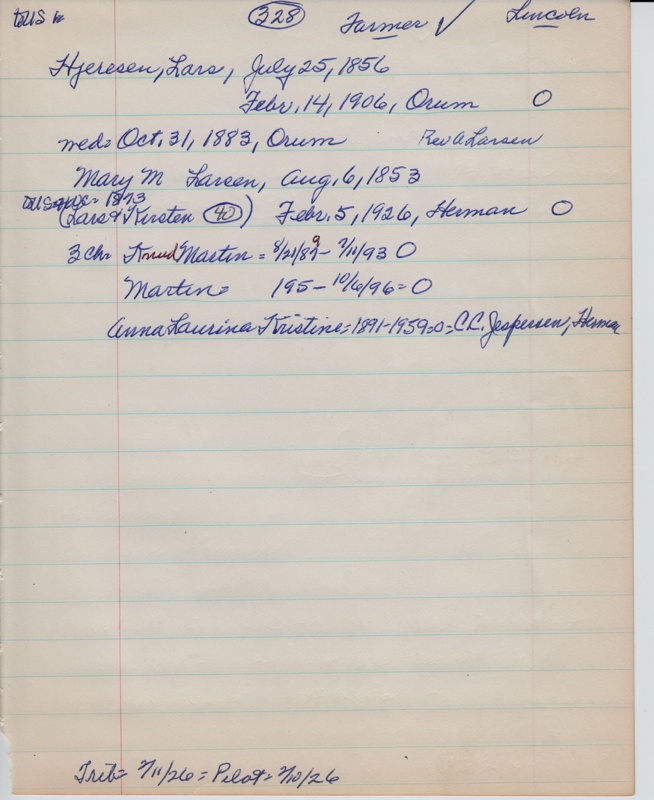 toUS w 328 Farmer ✓ Lincoln
Hjeresen, Lars, July 25, 1856
Febr. 14, 1906, Orum O
med= Oct. 31, 1883, Orum Rev A Larsen
Mary M Larsen, Aug. 6, 1853
toUS 1873
(Lars & Kirsten 40) Febr. 5, 1926, Herman O
3 chr Knud Martin = 8/21/89 - 7/11/93 O
Martin = 195 - 10/6/96 = O
Anna Laurina Kristine = 1891-1959=0= C.C. Jespersen, Herman
Trib= 2/11/26 = Pilot= 2/10/26